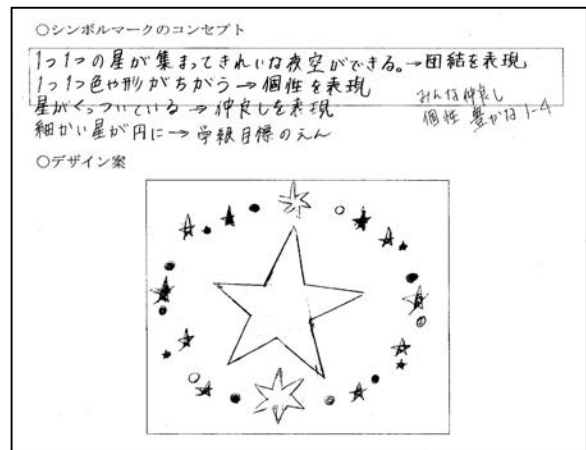 ○シンボルマークのコンセプト
1つ1つの星が集まってきれいな夜空ができる。→団結を表現
1つ1つ色や形がちがう→個性を表現
星がくっついている→仲良しを表現
細かい星が円に→学級目標のえん
みんな仲良し
個性豊かな1-4
○デザイン案